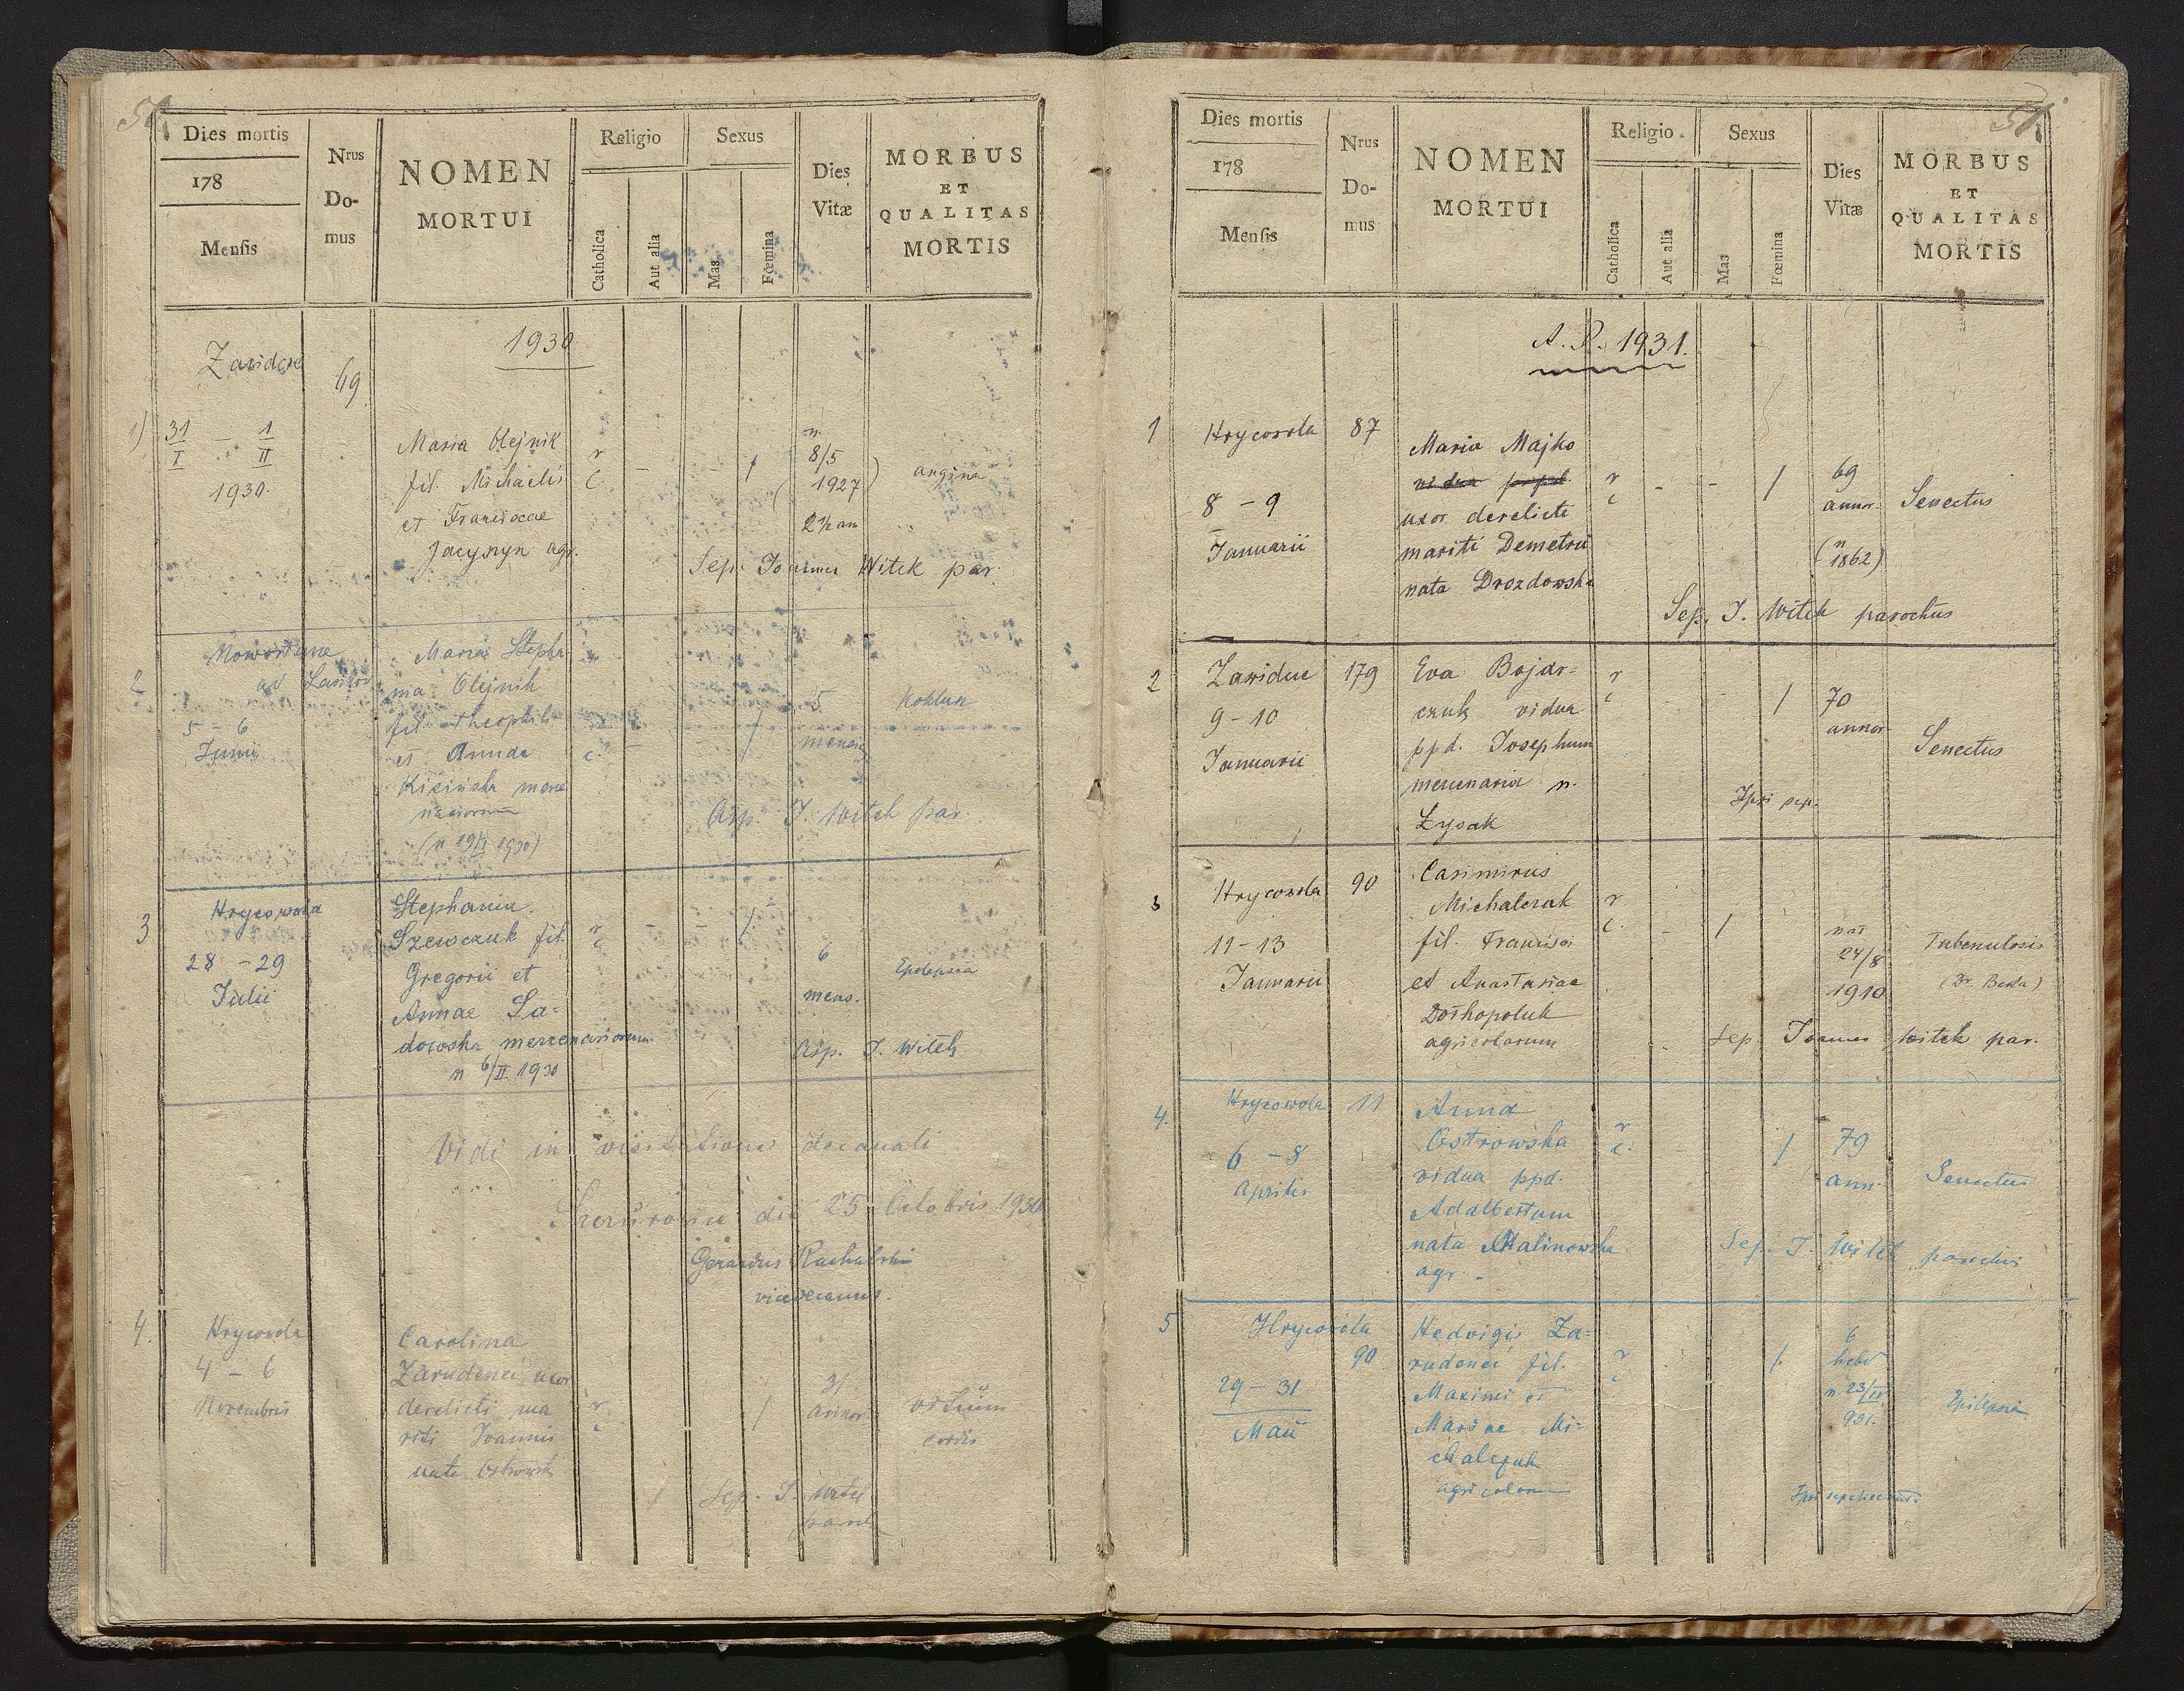 Dies mortis
178
Mensis
Nrus
Do-
mus
NOMEN
MORTUI
Religio
Catholica
Aut alia
Sexus
Mas
Fœmina
Dies
Vitæ
MORBUS
ET
QUALITAS
MORTIS
1930
69
1)
31 – 1
I II
1930.
Maria Olejnik
fil. Michaelis
et Franciscae
agr.
r
c
–
/
n.
8/5
(1927)
2½ an
angina
Sep. Joannes Witek par.
2
5 – 6
Junii
Maria Stepha
nia Olejnik
fil. Theophili
et Annae
Kisińska merce
nariorum
r
c
–
/
5
mens
Asp. J. Witek par.
3
Hrycowola
28 – 29
Julii
Stephania
Szewczuk fil.
Gregorii et
Annae Sa=
dowska mercenariorum
n 6/II 1930
r
c
–
–
/
6
mens.
Epilepsia
Asp. J. Witek
Vidi in visitatione decanali
die 25 Octobris 1930
Gerardus
vicedecanus.
4.
Hrycowola
4 – 6
Novembris
Carolina
Zarudenci uxor
derelicti ma
riti Joannis
nata Ostrowska
r
c
/
31
annor
vitium
cordis
Sep. J. Witek
paroch
Dies mortis
178
Mensis
Nrus
Do-
mus
NOMEN
MORTUI
Religio
Catholica
Aut alia
Sexus
Mas
Fœmina
Dies
Vitæ
MORBUS
ET
QUALITAS
MORTIS
A. D. 1931.
1
Hrycowola
87
8 – 9
Januarii
Maria Majko
vidua ppd.
uxor derelicti
mariti Demetrii
nata Drozdowska
r
c
–
–
/
69
annor.
(n
1862)
Senectus
Sep. J. Witek parochus
2
179
9 – 10
Januarii
Eva Bojar=
czuk vidua
ppd. Josephum
mercenaria n.
Łysak
r
c
/
70
annor.
Senectus
Ipsi sep.
3
Hrycowola
90
11 – 13
Januarii
Casimirus
Michalczuk
fil. Francisci
et Anastasiae
agricolarum
r
c.
–
/
nat
24/8
1910
Tuberculosis
Sep. Joannes Witek par.
4.
Hrycowola
11
6 – 8
Aprilis
Anna
Ostrowska
vidua ppd.
Adalbertum
nata Malinowska
agr. –
r
c.
/
79
ann.
Senectus
Sep. J. Witek parochus
5
Hrycowola
90
29 – 31
Maii
Hedvigis Za=
rudenci fil.
Maximi et
Mariae Mi=
chalczuk
agricolarum
r
c
/.
6
hebd
n 23/IV
931.
Epilepsia